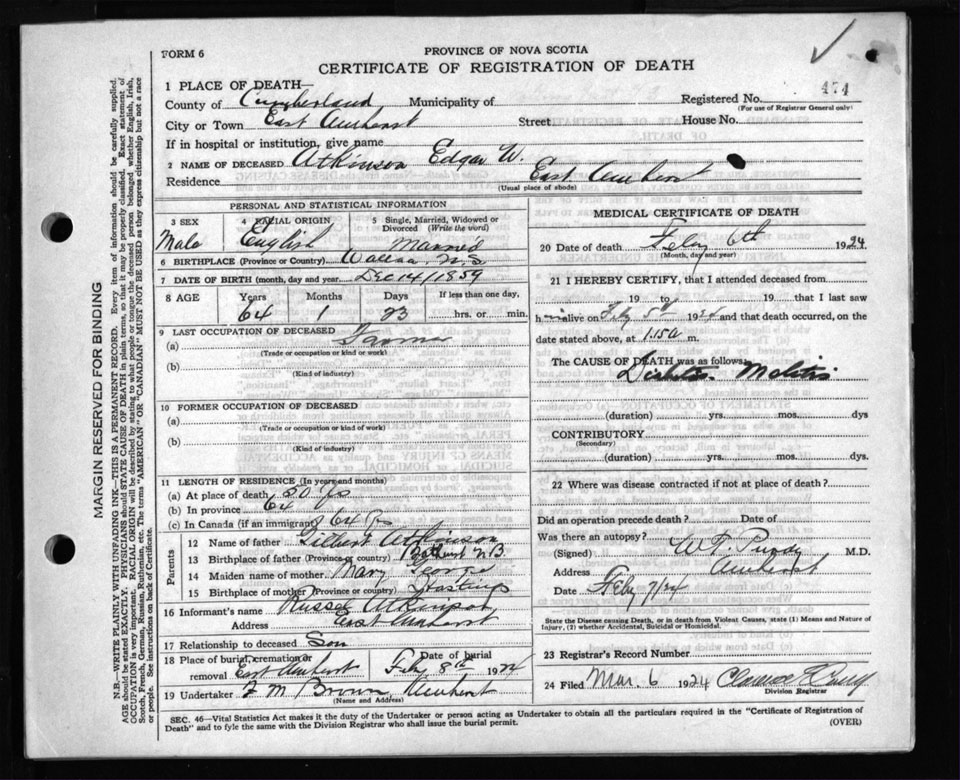 FORM 6
PROVINCE OF NOVA SCOTIA
CERTIFICATE OF REGISTRATION OF DEATH
1 PLACE OF DEATH—
474
County of Cumberland Municipality of Registered No.
(For use of Registrar General only)
City or Town East Amherst Street House No.
If in hospital or institution, give name
2 NAME OF DECEASED Atkinson Edgar W.
Residence East Amherst
(Usual place of abode)
PERSONAL AND STATISTICAL INFORMATION
3 SEX 4 RACIAL ORIGIN 5 Single, Married, Widowed or Divorced (Write the word)
Male English Married
6 BIRTHPLACE (Province or Country) Wallace, N.S.
7 DATE OF BIRTH (month, day and year) Dec 14/1859
8 AGE Years Months Days If less than one day,
64 1 23 hrs. or min.
9 LAST OCCUPATION OF DECEASED
(a) Farmer
(Trade or occupation or kind or work)
(b)
(Kind of industry)
10 FORMER OCCUPATION OF DECEASED
(a)
(Trade or occupation or kind of work)
(b)
(Kind of industry)
11 LENGTH OF RESIDENCE (In years and months)
(a) At place of death 50 yrs
(b) In province 64
(c) In Canada (if an immigrant) 64 yrs
Parents
12 Name of father Gilbert Atkinson
13 Birthplace of father (Province or country) Bathurst N.B.
14 Maiden name of mother Mary George
15 Birthplace of mother (Province or country) Hastings
16 Informant's name Russel Atkinson
Address East Amherst
17 Relationship to deceased Son
18 Place of burial, cremation or removal East Amherst Date of burial Feby 8th 1924
19 Undertaker F M Brown Amherst
(Name and Address)
MEDICAL CERTIFICATE OF DEATH
20 Date of death Feby 6th 1924
(Month, day and year)
21 I HEREBY CERTIFY, that I attended deceased from
19 to 19 that I last saw
him alive on Feby 5th 1924 and that death occurred, on
date stated above, at 1.15 a m.
The CAUSE OF DEATH was as follows:
Diabetes Melitis
(duration) yrs. mos. dys
CONTRIBUTORY
(Secondary)
(duration) yrs. mos. dys.
22 Where was disease contracted if not at place of death?
Did an operation precede death? Date of
Was there an autopsy?
(Signed) W.T. Purdy M.D.
Address Amherst
Date Feby 7/24
State the Disease causing Death, or in death from Violent Causes, state (1) Means and Nature of
Injury, (2) whether Accidental, Suicidal or Homicidal.
23 Registrar's Record Number
24 Filed Mar. 6 1924
Division Registrar
SEC. 46—Vital Statistics Act makes it the duty of the Undertaker or person acting as Undertaker to obtain all the particulars required in the "Certificate of Registration of
Death" and to fyle the same with the Division Registrar who shall issue the burial permit. (OVER)
MARGIN RESERVED FOR BINDING
N.B.—WRITE PLAINLY WITH UNFADING INK—THIS IS A PERMANENT RECORD. Every item of information should be carefully supplied.
AGE should be stated EXACTLY. PHYSICIANS should STATE CAUSE OF DEATH in plain terms, so that it may be properly classified. Exact statement of
OCCUPATION is very important. RACIAL ORIGIN will be described by stating to what people or tongue the deceased person belonged, whether English, Irish,
Scotch, French, German, Russian, Ruthenian, etc. The terms "AMERICAN" OR "CANADIAN" MUST NOT BE USED as they express citizenship but not a race
or people. See instructions on back of Certificate.